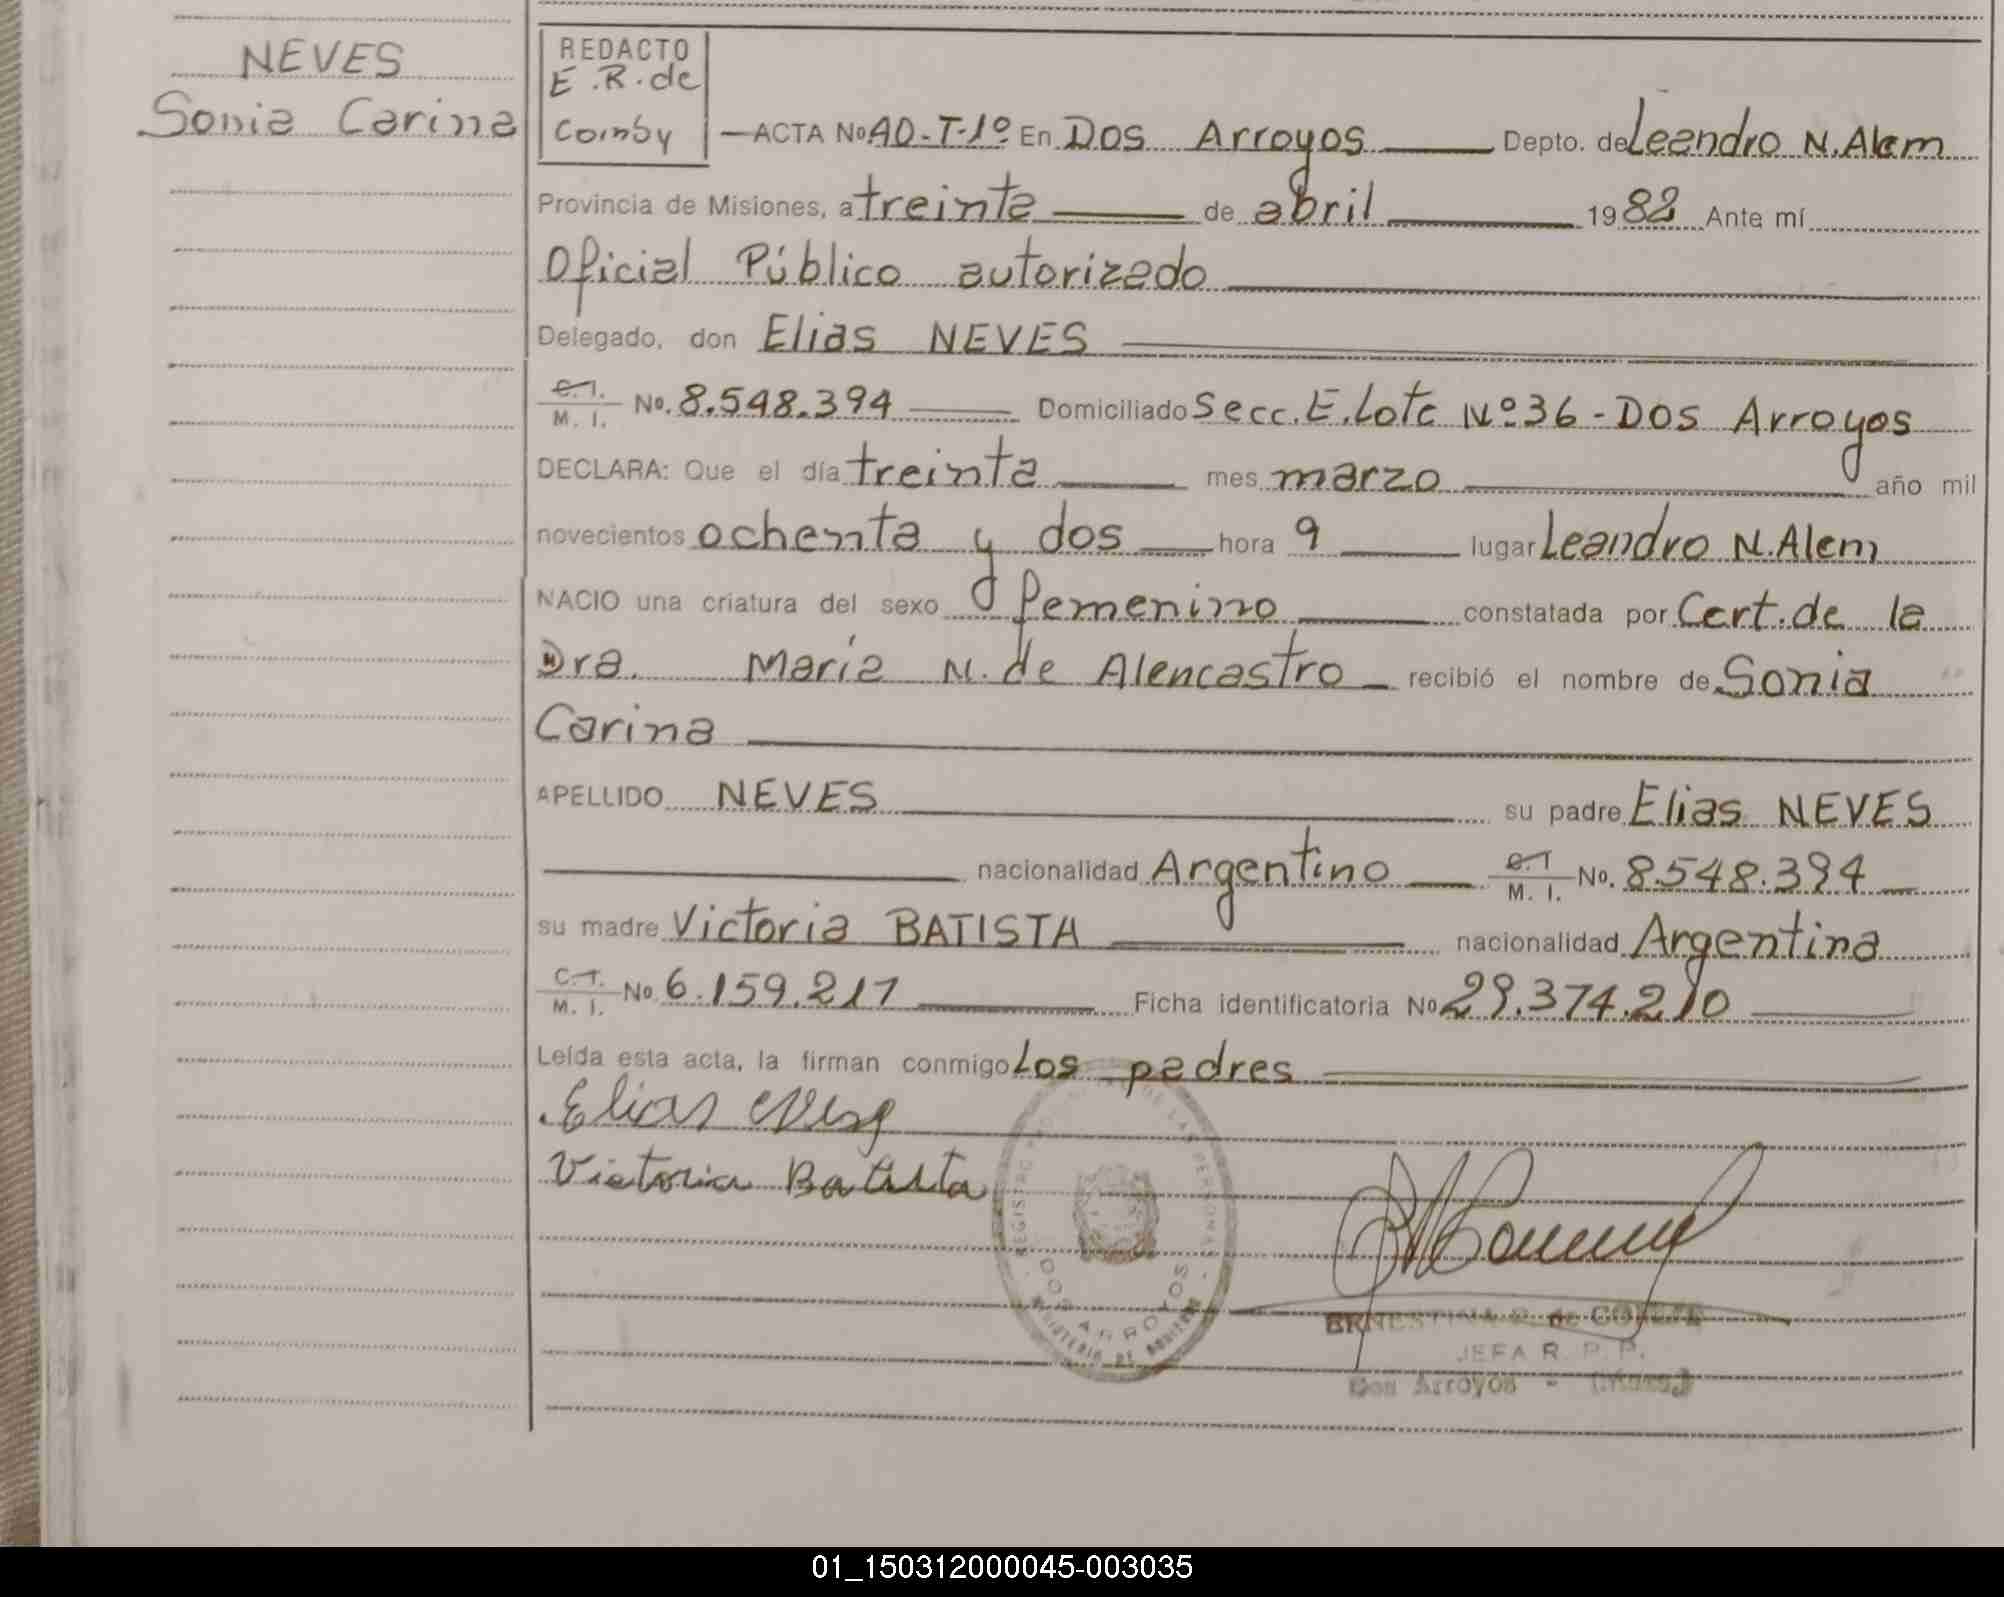 NEVES
Sonia Carina
REDACTO
E.R. de
Comby
—ACTA No. 40-T-1º En Dos Arroyos Depto. de Leandro N. Alem
Provincia de Misiones, a treinta de abril 1982 Ante mí
Oficial Público autorizado
Delegado, don Elias NEVES
C.I. M. I. No. 8.548.394 Domiciliado Secc. E. Lote Nº 36 - Dos Arroyos
DECLARA: Que el día treinta mes marzo año mil
novecientos ochenta y dos hora 9 lugar Leandro N. Alem
NACIO una criatura del sexo femenino constatada por Cert. de la
Dra. María N. de Alencastro recibió el nombre de Sonia
Carina
APELLIDO NEVES su padre Elias NEVES
nacionalidad Argentino C.I M. I. No. 8.548.394
su madre Victoria BATISTA nacionalidad Argentina
C.I. M. I. No. 6.159.217 Ficha identificatoria No. 29.374.210
Leída esta acta, la firman conmigo Los padres
Elias
Victoria Batista
REGISTRO DE LAS PERSONAS
DOS ARROYOS
MINISTERIO DE GOBIERNO
ERNESTINA R. de
JEFA R. P. P.
Dos Arroyos - (Mnes.)
01_150312000045-003035